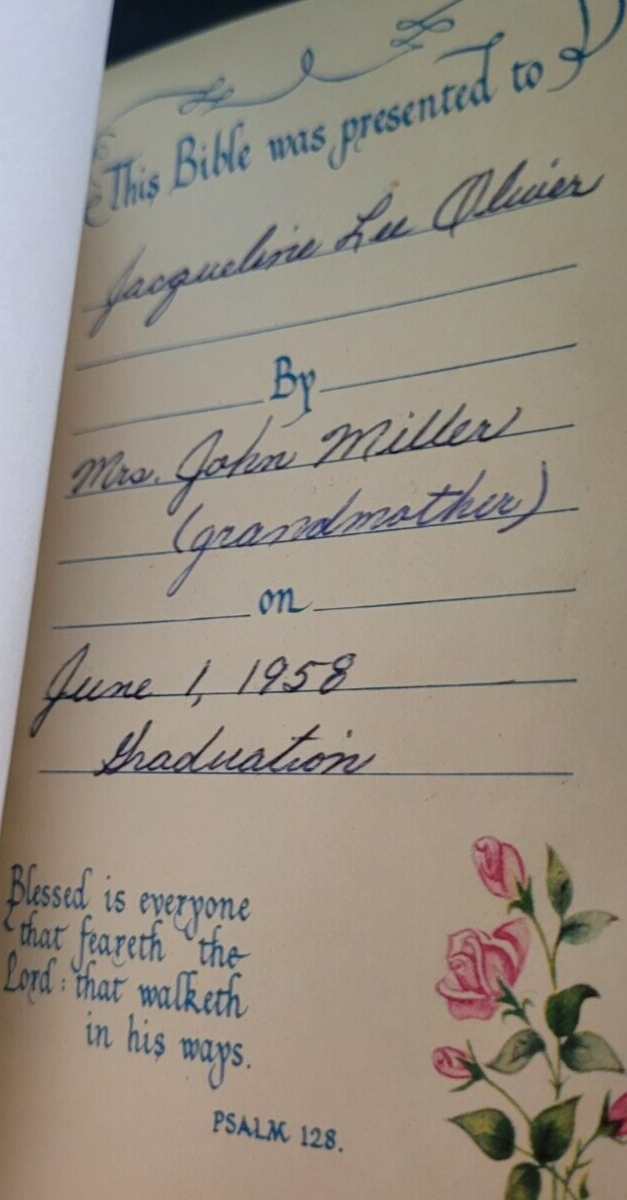 This Bible was presented to
Jacqueline Lee Olivier
By
Mrs. John Miller
(grandmother)
on
June 1, 1958
Graduation
Blessed is everyone
that feareth the
Lord: that walketh
in his ways.
PSALM 128.